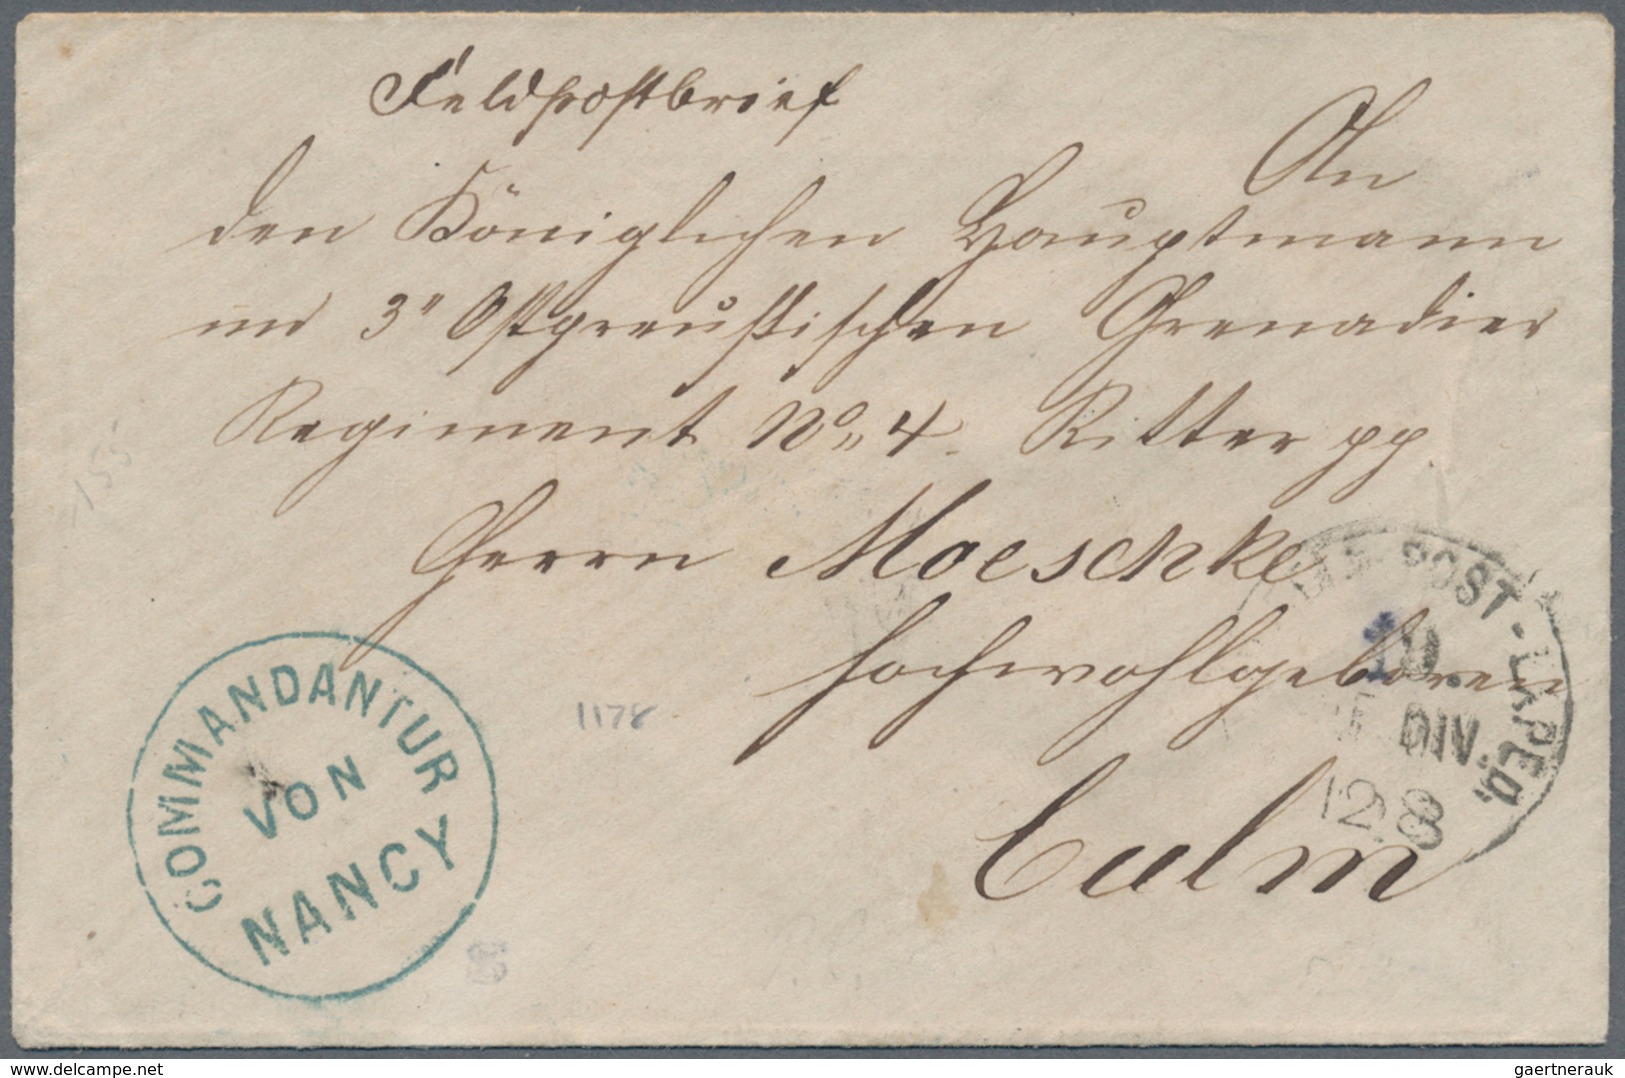 Feldpostbrief
An
den Königlichen Hauptmann
im 3" Ostpreußischen Grenadier
Regiment No 4. Ritter pp
Herrn Moeschke
Hochwohlgeboren
Culm
COMMANDANTUR
VON
NANCY
POST-EXPED.
DIV.
128
1178
155
delcampe.net
gaertnerauk